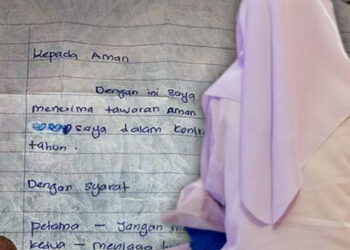 Kepada Aman
Dengan ini saya
menerima tawaran Aman
saya dalam
tahun.
Dengan syarat
petama – Jangan
kedua – menjaga